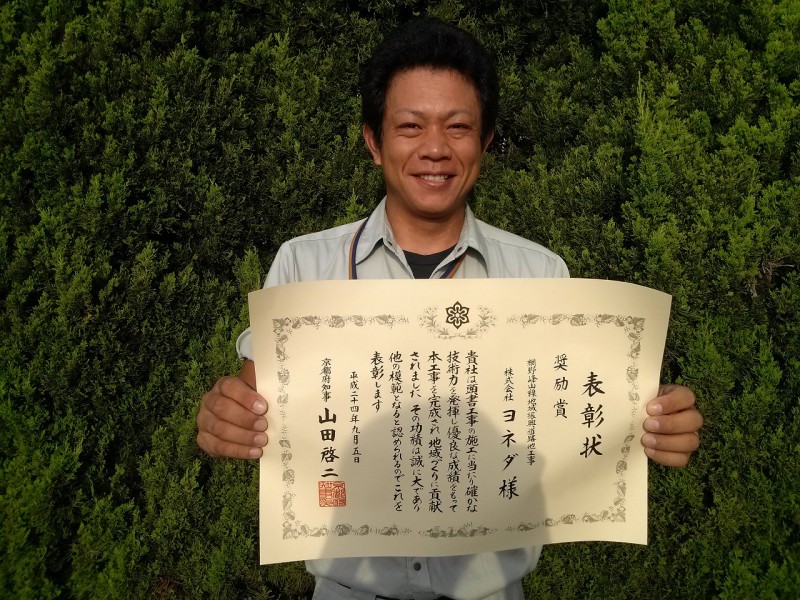 表彰状
奨励賞
網野峰山線地域振興道路他工事
株式会社 ヨネダ 様
貴社は頭書工事の施工に当たり確かな
技術力を発揮し優良な成績をもって
本工事を完成され地域づくりに貢献
されました その功績は誠に大であり
他の模範となると認められるのでこれを
表彰します
平成二十四年九月五日
京都府知事 山田啓二